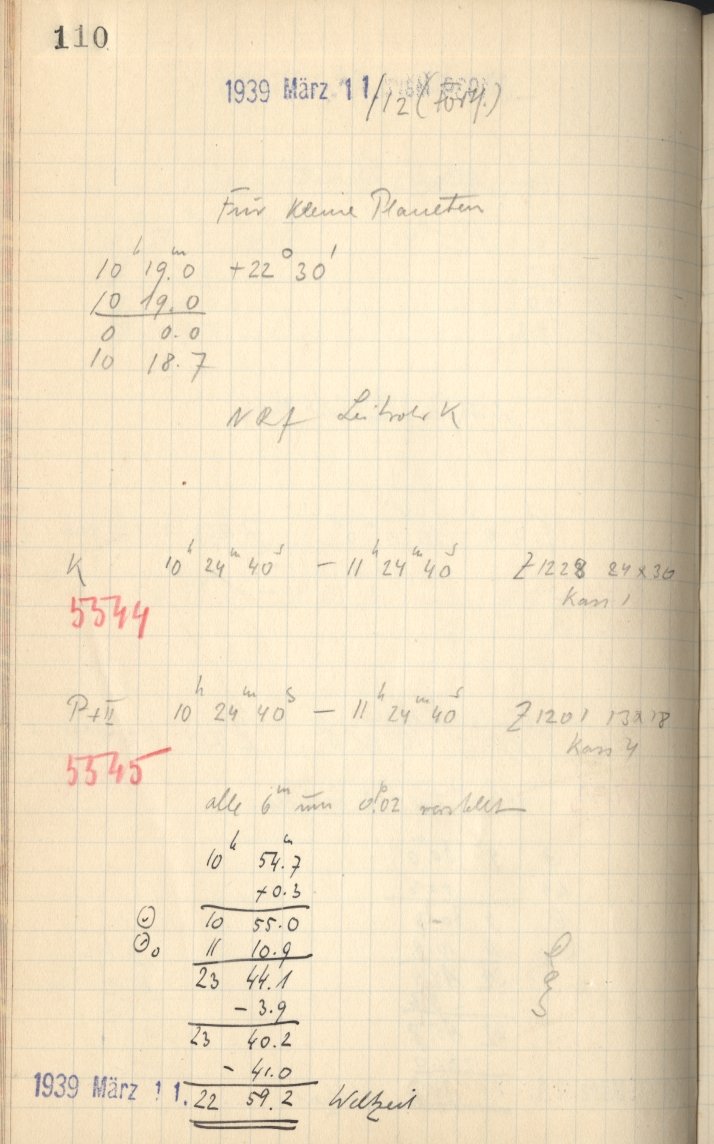 110
1939 März 11/12 (Forts.)
Für kleine Planeten
10ʰ 19.ᵐ0 +22° 30'
10 19.0
0 0.0
10 18.7
NRf Leitrohr K
K 10ʰ 24ᵐ 40ˢ – 11ʰ 24ᵐ 40ˢ Z 1228 24×30
Kass 1
5544
P+II 10ʰ 24ᵐ 40ˢ – 11ʰ 24ᵐ 40ˢ Z 1201 13×18
Kass 4
5545
alle 6ᵐ um 0.ᵖ02 verstellt
10ʰ 54.ᵐ7
+0.3
10 55.0
11 10.9
23 44.1
– 3.9
23 40.2
– 41.0
1939 März 11. 22 59.2 Weltzeit